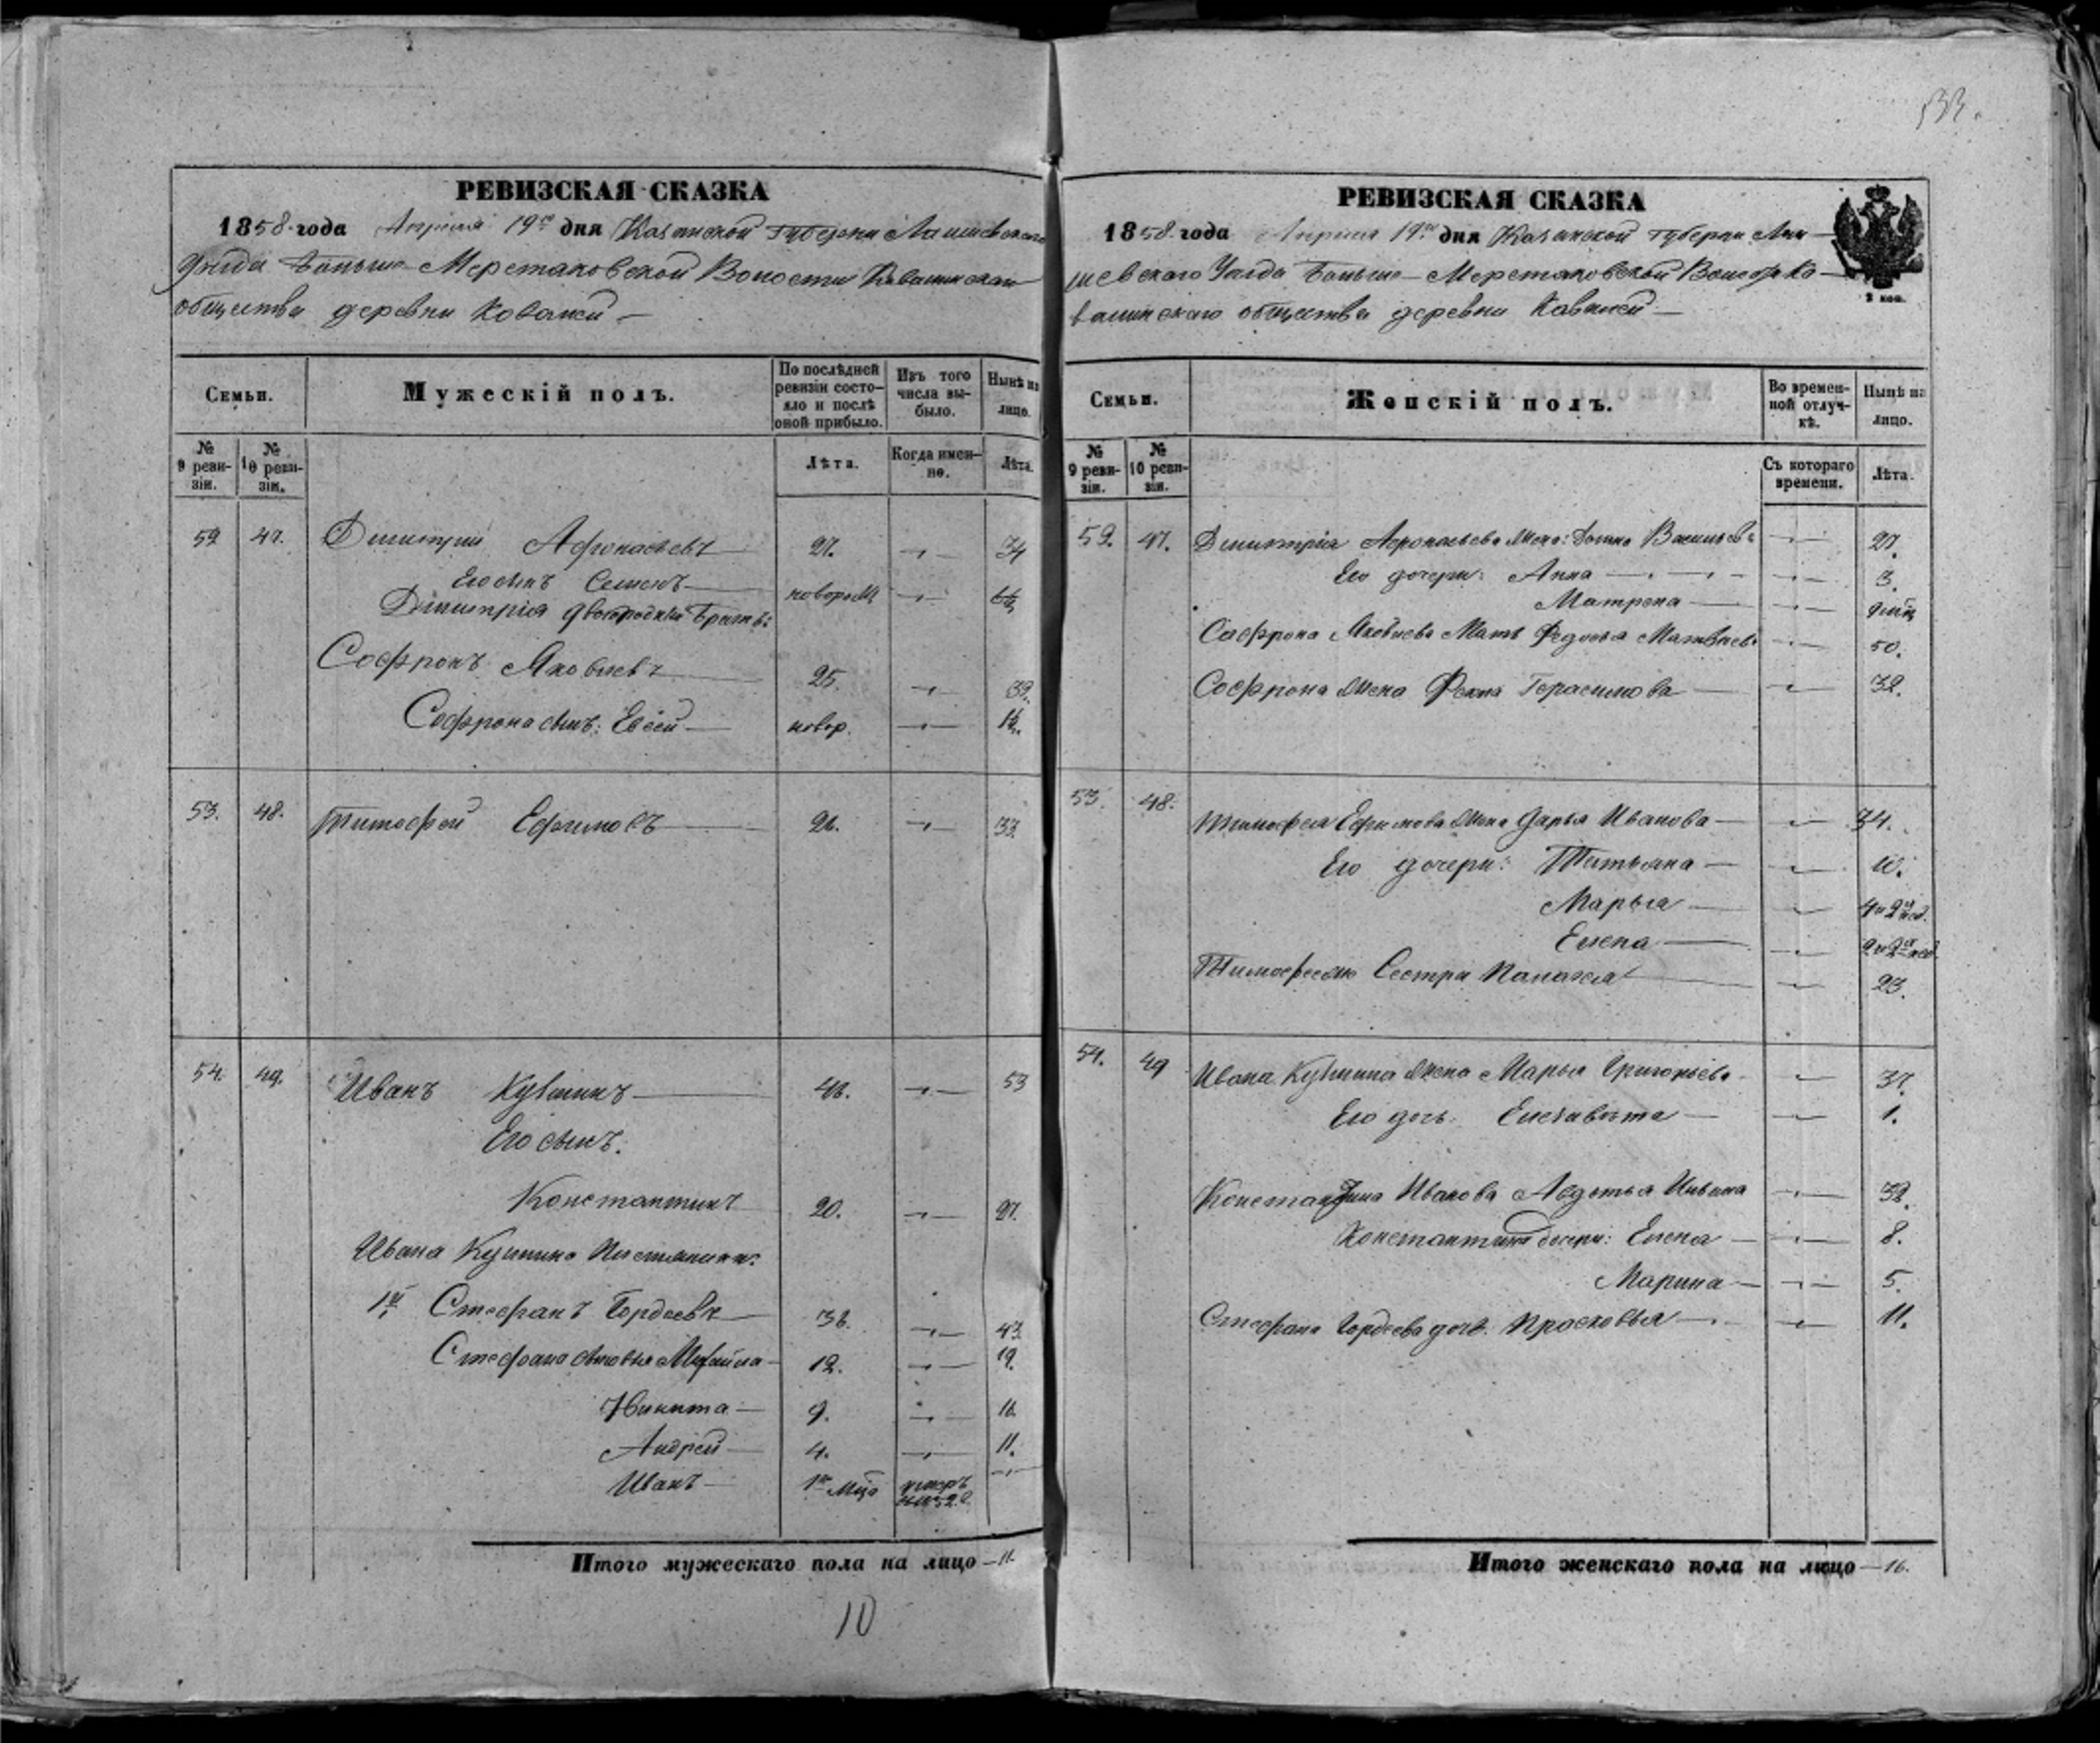 533.
РЕВИЗСКАЯ СКАЗКА
1858 года Апреля 19го дня Казанской Губерни Лаишевскаго
Уезда Больше-Меретяковской Волости Ковалинскаго
общества деревни Ковалей —
Семьи.
Мужескій полъ.
По послѣдней ревизіи состояло и послѣ оной прибыло.
Изъ того числа выбыло.
Нынѣ на лицо.
№ 9 ревизіи.
№ 10 ревизіи.
Лѣта.
Когда именно.
Лѣта.
52 47. Димитрий Афонасьевъ 27. 34
Его сынъ Семенъ новорож
Димитрія двоюродный братъ:
Софронъ Яковлевъ 25. 32.
Софрона сынъ: Евсей новор.
53. 48. Тимофей Ефимовъ 26. 33
54. 49. Иванъ Кузминъ 46. 53
Его сынъ.
Константинъ 20. 27.
Ивана Кузмина
1й Стефанъ Гордеевъ 36. 43
Стефана сыновья Михайла 12. 19.
Никита 9. 16
Андрей 4. 11.
Иванъ умеръ
Итого мужескаго пола на лицо 11.
10
РЕВИЗСКАЯ СКАЗКА
1858 года Апреля 19го дня Казанской губерни Лаи-
шевскаго Уезда Больше-Меретяковской Волости Ко-
валинскаго общества деревни Ковалей —
2 коп.
Семьи.
Женскій полъ.
Во временной отлучкѣ.
Нынѣ на лицо.
№ 9 ревизіи.
№ 10 ревизіи.
Съ котораго времени.
Лѣта.
52. 47. Димитрія Афонасьева жена: Васильева 27.
Его дочери: Анна 3.
Матрена
Софрона Яковлева Мать Федосья Матвѣева 50.
Софрона жена Фекла Герасимова 32.
53. 48. Тимофея Ефимова жена Дарья Иванова 34.
Его дочери: Татьяна 10.
Марья
Елена
Сестра Палагея 23.
54. 49 Ивана Кузмина жена Марья Григорьева 37.
Его дочь. Елизавета 1.
Константина Иванова Авдотья 32.
Константина дочери: Елена 8.
Марина 5.
Стефана Гордеева дочь. Прасковья 11.
Итого женскаго пола на лицо 16.